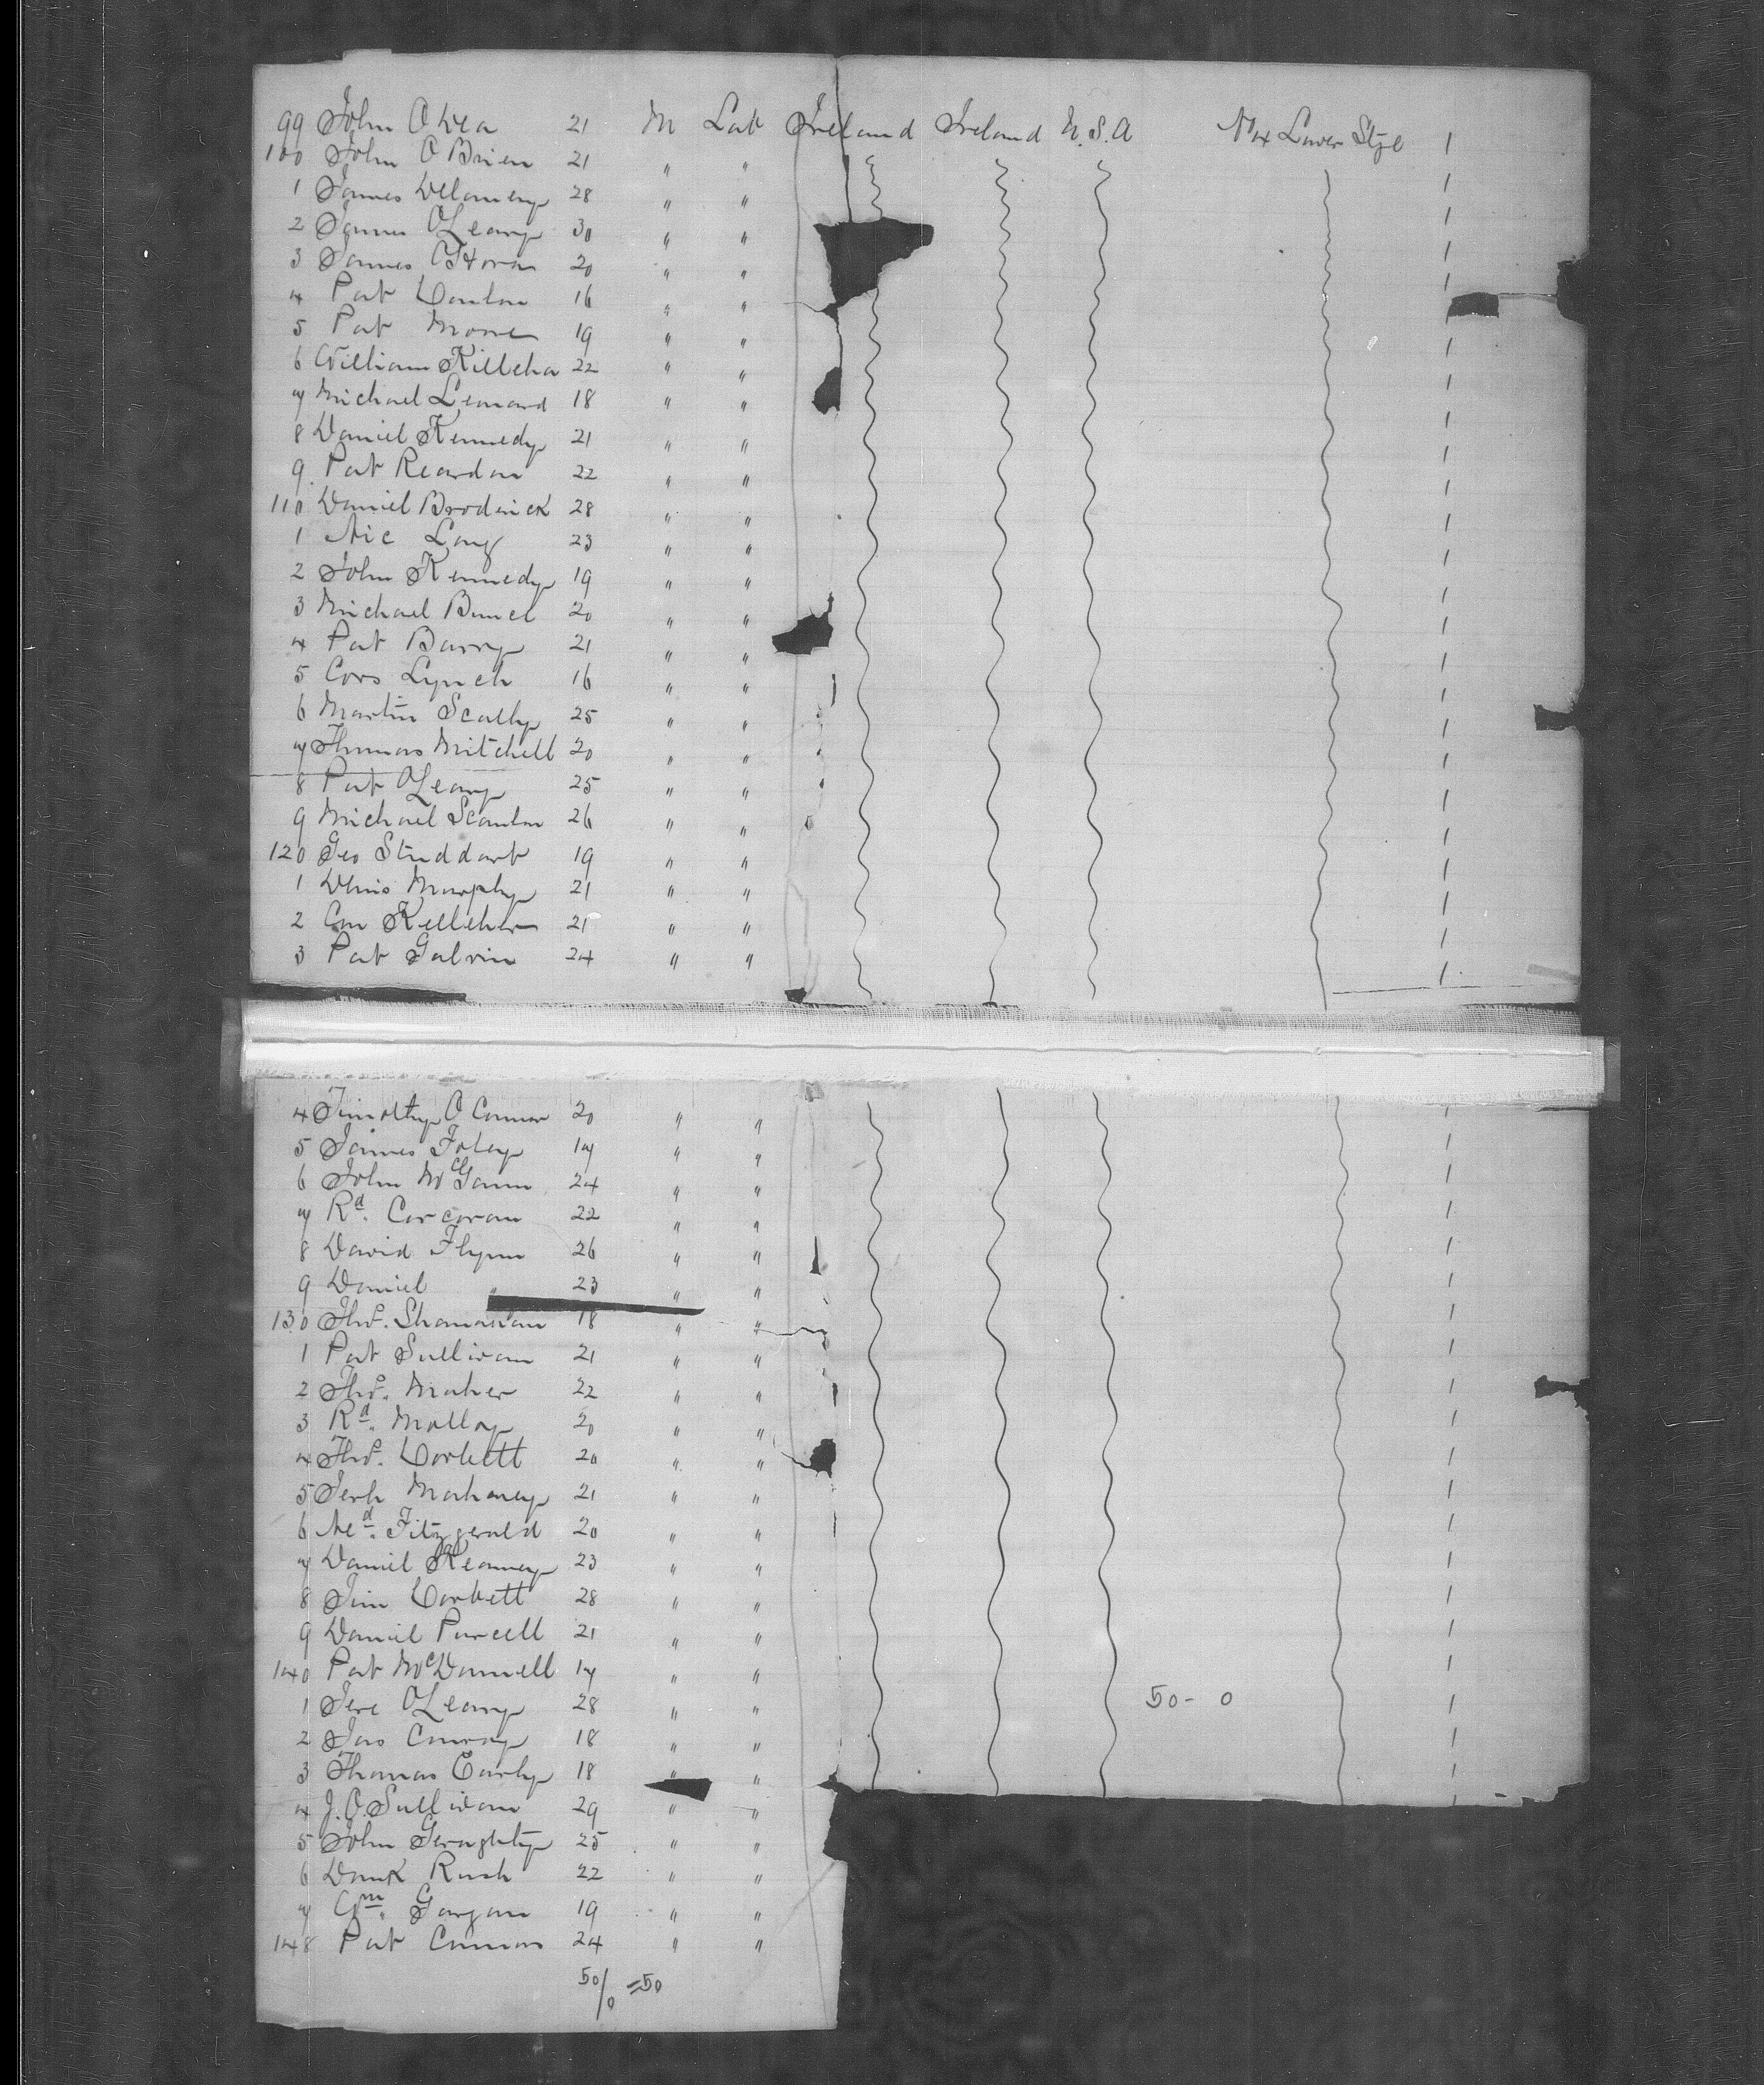 99 John O Dea 21 M Lab Ireland Ireland U.S.A Lower Stge 1
100 John O Brien 21 " " 1
1 James Delaney 28 " " 1
2 James OLeary 30 " " 1
3 James OHoran 20 " " 1
4 Pat Conlon 16 " " 1
5 Pat Mone 19 " " 1
6 William Killeha 22 " " 1
7 Michael Leonard 18 " " 1
8 Daniel Kennedy 21 " " 1
9 Pat Reardon 22 " " 1
110 Daniel Broderick 28 " " 1
1 Nic Long 23 " " 1
2 John Kennedy 19 " " 1
3 Michael 20 " " 1
4 Pat Barry 21 " " 1
5 Cors Lynch 16 " " 1
6 Martin Scally 25 " " 1
7 Thomas Mitchell 20 " " 1
8 Pat OLeary 25 " " 1
9 Michael Scanlon 26 " " 1
120 Geo Studdart 19 " " 1
1 Denis Murphy 21 " " 1
2 Cm Kelleher 21 " " 1
3 Pat Galvin 24 " " 1
4 Timothy O Connor 20 " " 1
5 James Foley 17 " " 1
6 John McGann 24 " " 1
7 Rd. Corcoran 22 " " 1
8 David Flynn 26 " " 1
9 Daniel " 23 " " 1
130 Thos. Shanahan 18 " " 1
1 Pat Sullivan 21 " " 1
2 Thos. Maher 22 " " 1
3 Rd. Molloy 20 " " 1
4 Thos. Corbett 20 " " 1
5 Jerh Mahoney 21 " " 1
6 Ned. Fitzgerald 20 " " 1
7 Daniel Keaney 23 " " 1
8 Jim Corbett 28 " " 1
9 Daniel Purcell 21 " " 1
140 Pat McDonnell 17 " " 1
1 Jere OLeary 28 " " 50 - 0 1
2 Jas Conroy 18 " " 1
3 Thomas Early 18 " " 1
4 J.O.Sullivan 29 " "
5 John Geraghty 25 " "
6 Domk Rush 22 " "
7 Wm. Gargan 19 " "
148 Pat Connors 24 " "
50/0 =50